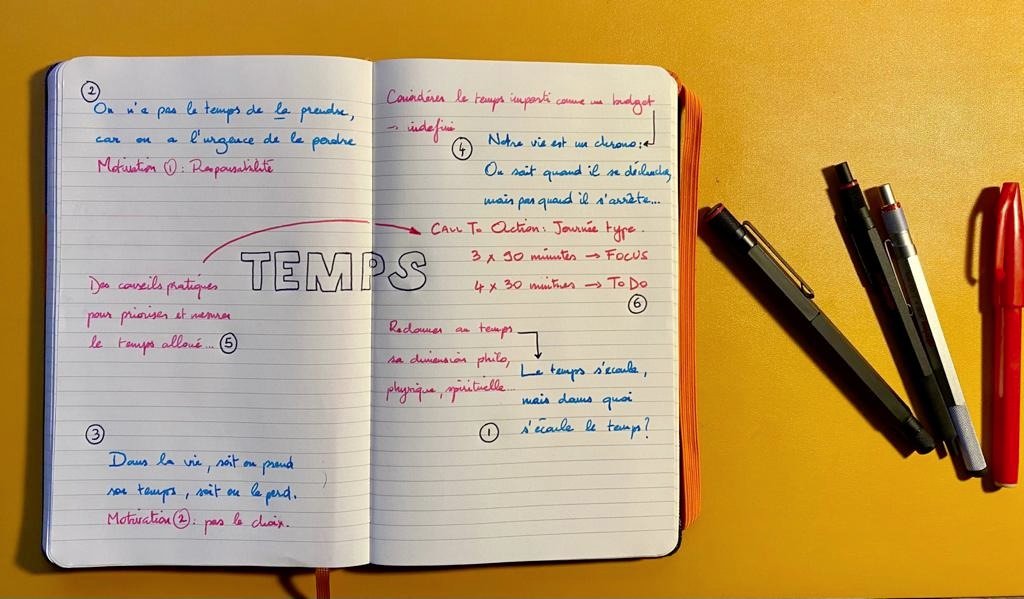 ②
On n'a pas le temps de la prendre,
car on a l'urgence de le perdre
Motivation ① : Responsabilité
TEMPS
Des conseils pratiques
pour prioriser et mesurer
le temps alloué... ⑤
③
Dans la vie, soit on prend
son temps, soit on le perd.
Motivation ② : pas le choix.
Considérer le temps imparti comme un budget
→ indéfini
④ Notre vie est un chrono :
On sait quand il se déclenche,
mais pas quand il s'arrête...
CALL TO Action : Journée type.
3 x 90 minutes → FOCUS
4 x 30 minutes → TO DO
⑥
Redonner au temps
sa dimension philo,
physique, spirituelle...
Le temps s'écoule,
mais dans quoi
s'écoule le temps ?
①